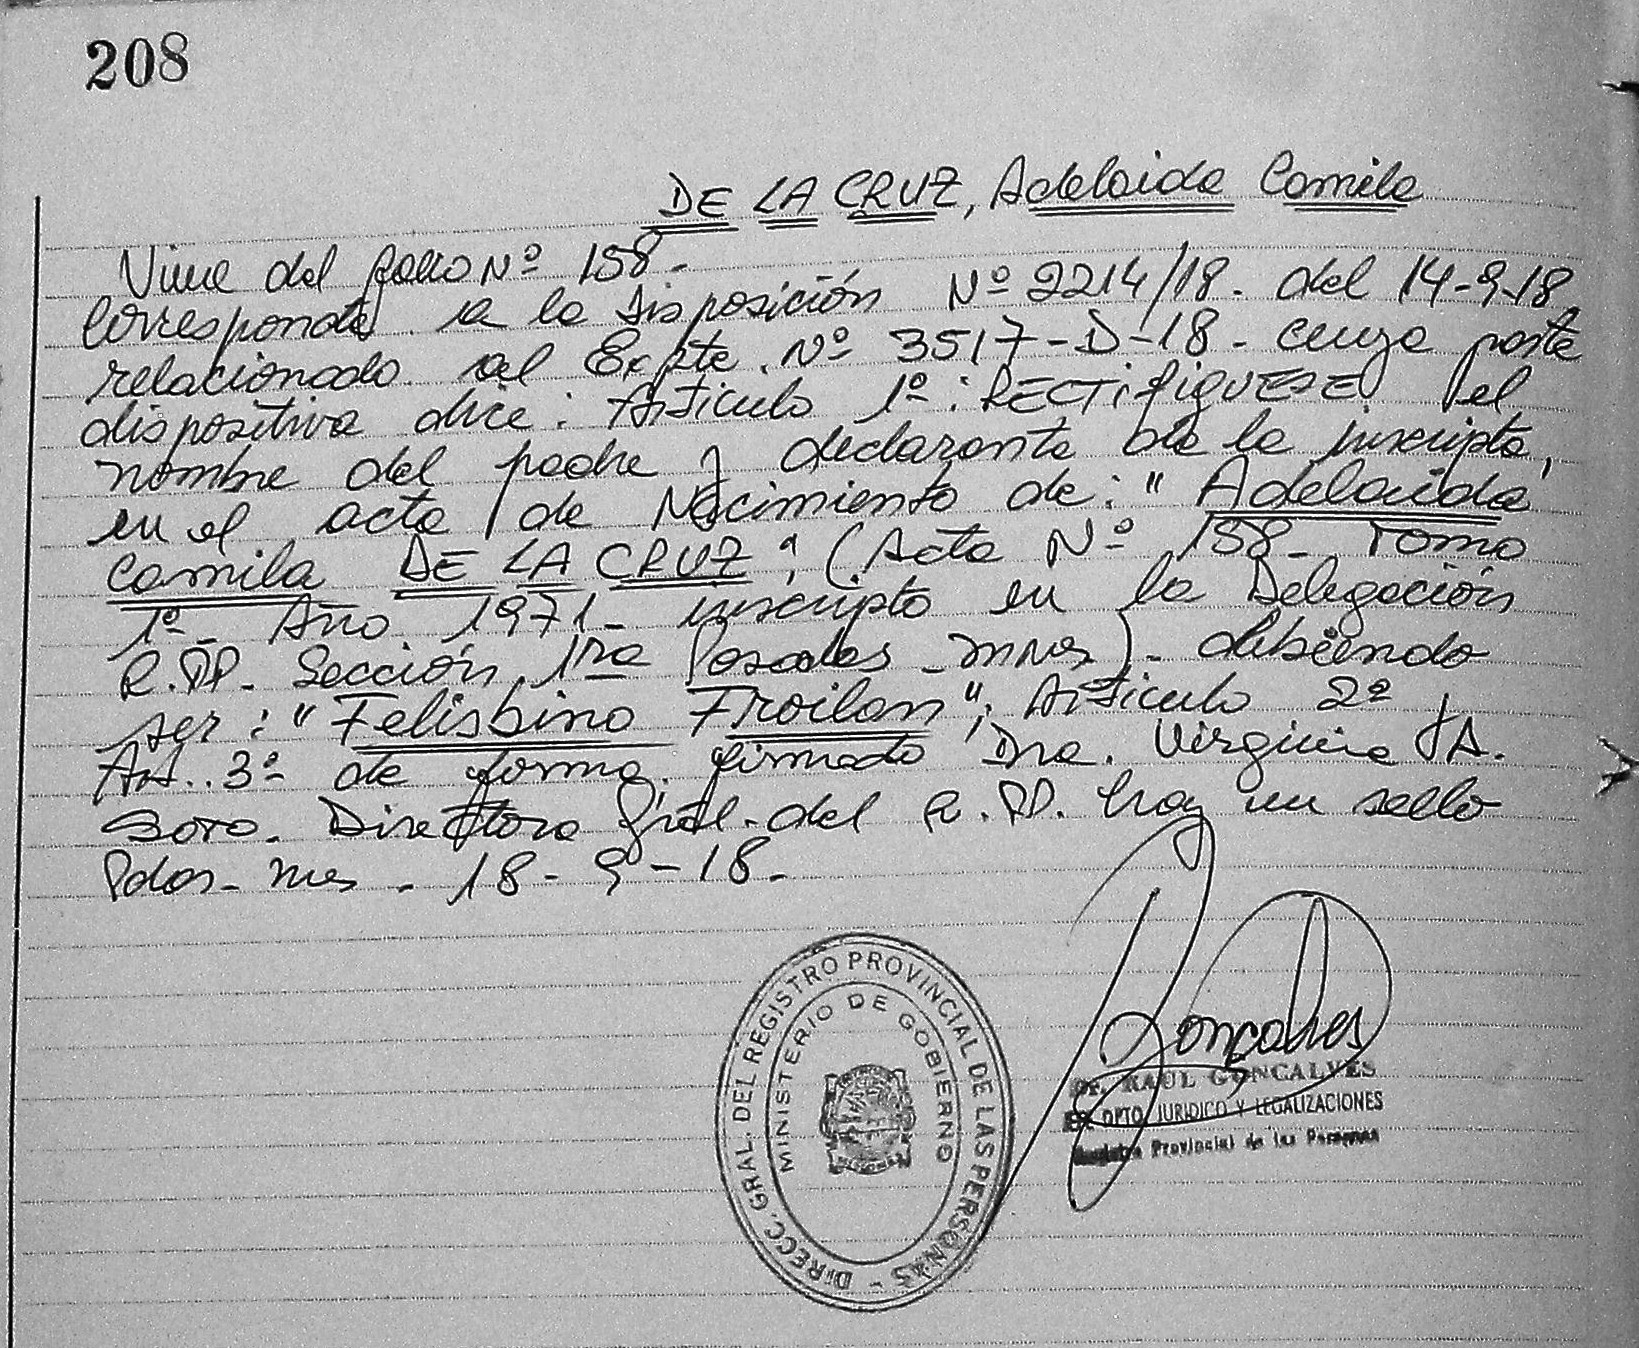 208
DE LA CRUZ, Adelaida Camila
Viene del folio Nº 158.
Corresponde a la Disposición Nº 2214/18. del 14-9-18,
relacionado al Expte. Nº 3517-D-18. cuya parte
dispositiva dice: Artículo 1º: RECTIFIQUESE el
nombre del padre y declarante de la inscripta,
en el acta de Nacimiento de: "Adelaida
Camila DE LA CRUZ", (Acta Nº 158- Tomo
1º- Año 1971- inscripto en la Delegación
R.PP. Sección 1ra Posadas-Mnes). debiendo
ser: "Felisbino Froilan". Artículo 2º
Art. 3º de forma. firmado Dra. Virginia A.
Soto. Directora Gral. del R.PP. hay un sello
Pdas- Mnes. 18-9-18.
DIRECC. GRAL. DEL REGISTRO PROVINCIAL DE LAS PERSONAS -
MINISTERIO DE GOBIERNO
MISIONES
Gonçalves
RAUL GONCALVES
DPTO. JURIDICO Y LEGALIZACIONES
Registro Provincial de las Personas